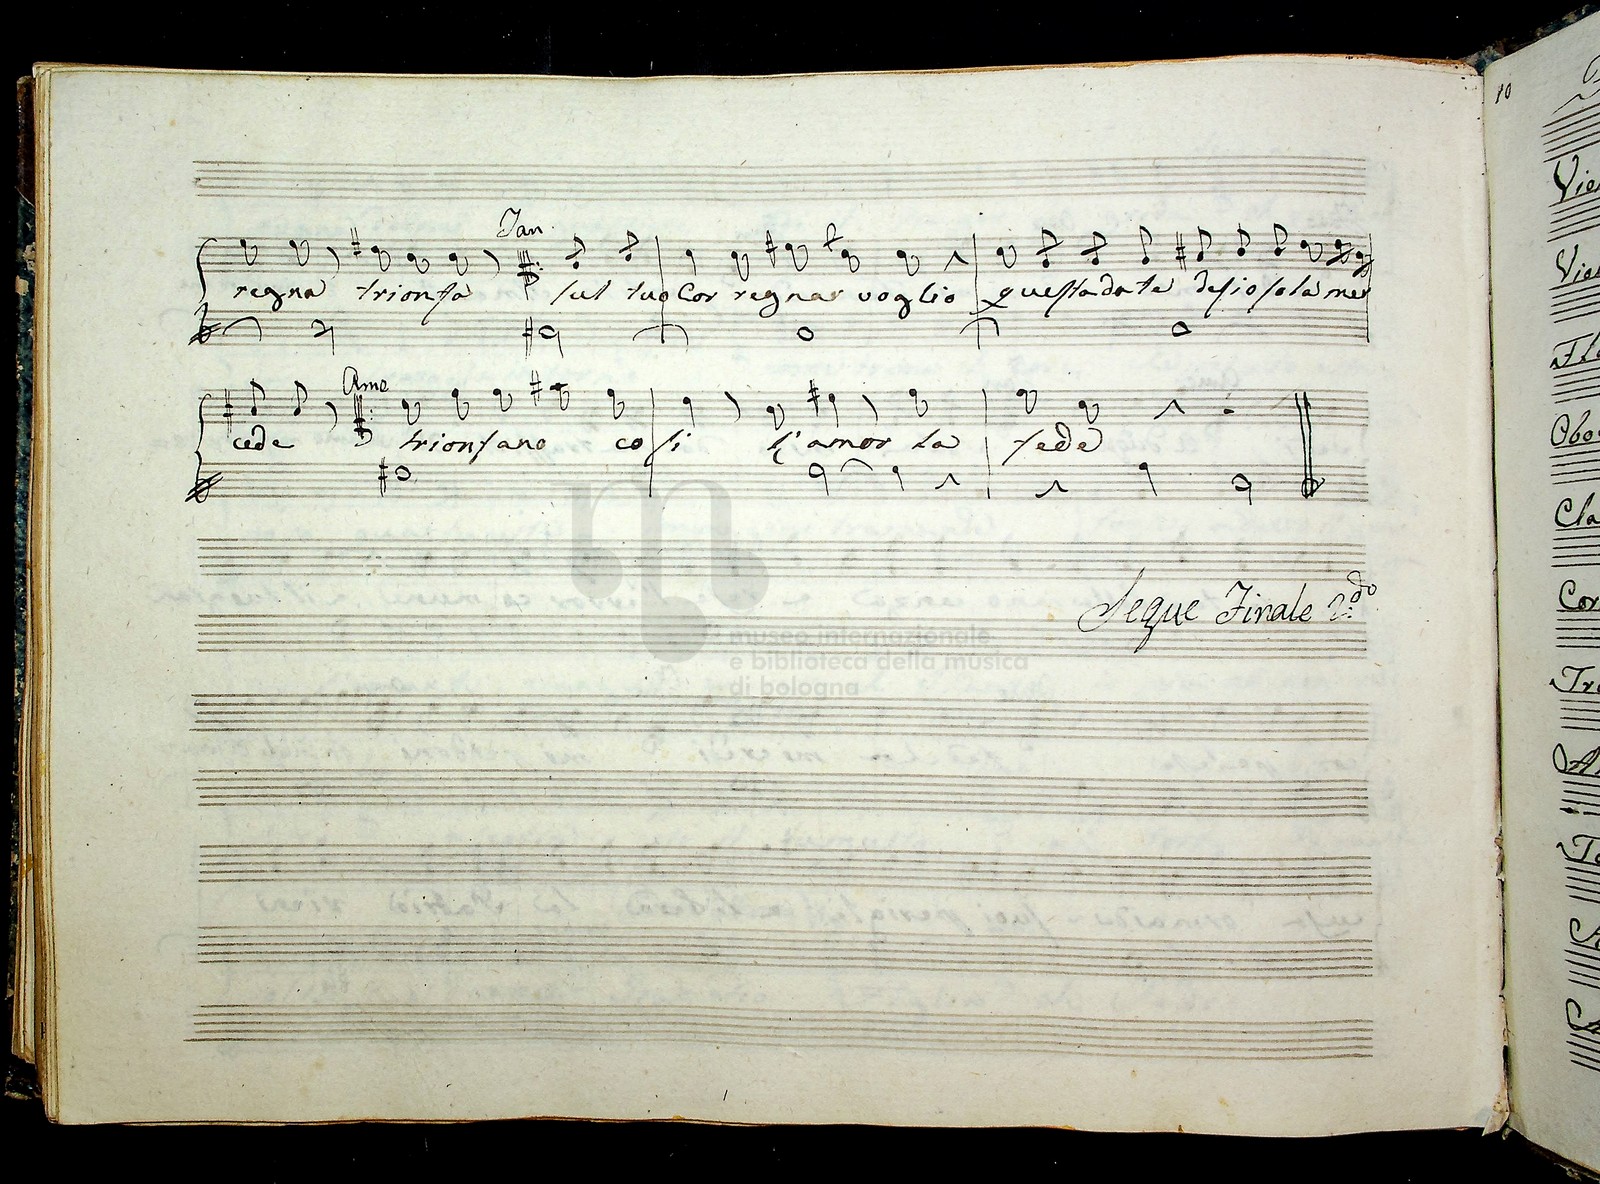 Tan.
regna trionfa sul tuo Cor regnar voglio questa da te desio sola mer
Ame
cede trionfano cosi l'amor la fede
Segue Finale 2.do
museo internazionale
e biblioteca della musica
di bologna
10
Vio
Vio
Fla
Obo
Cla
Cor
Tro